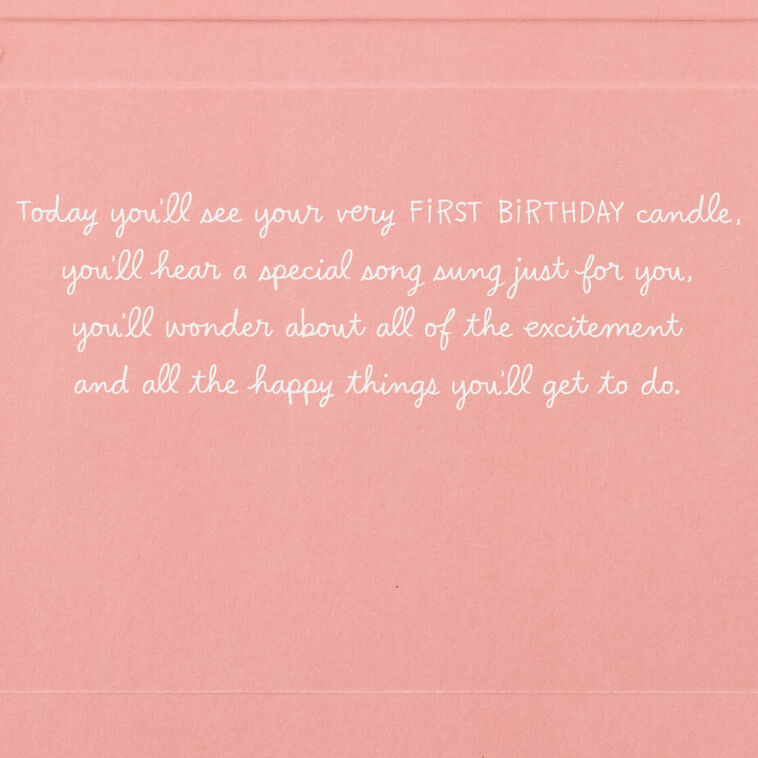 Today you'll see your very FiRST BiRTHDAY candle,
you'll hear a special song sung just for you,
you'll wonder about all of the excitement
and all the happy things you'll get to do.